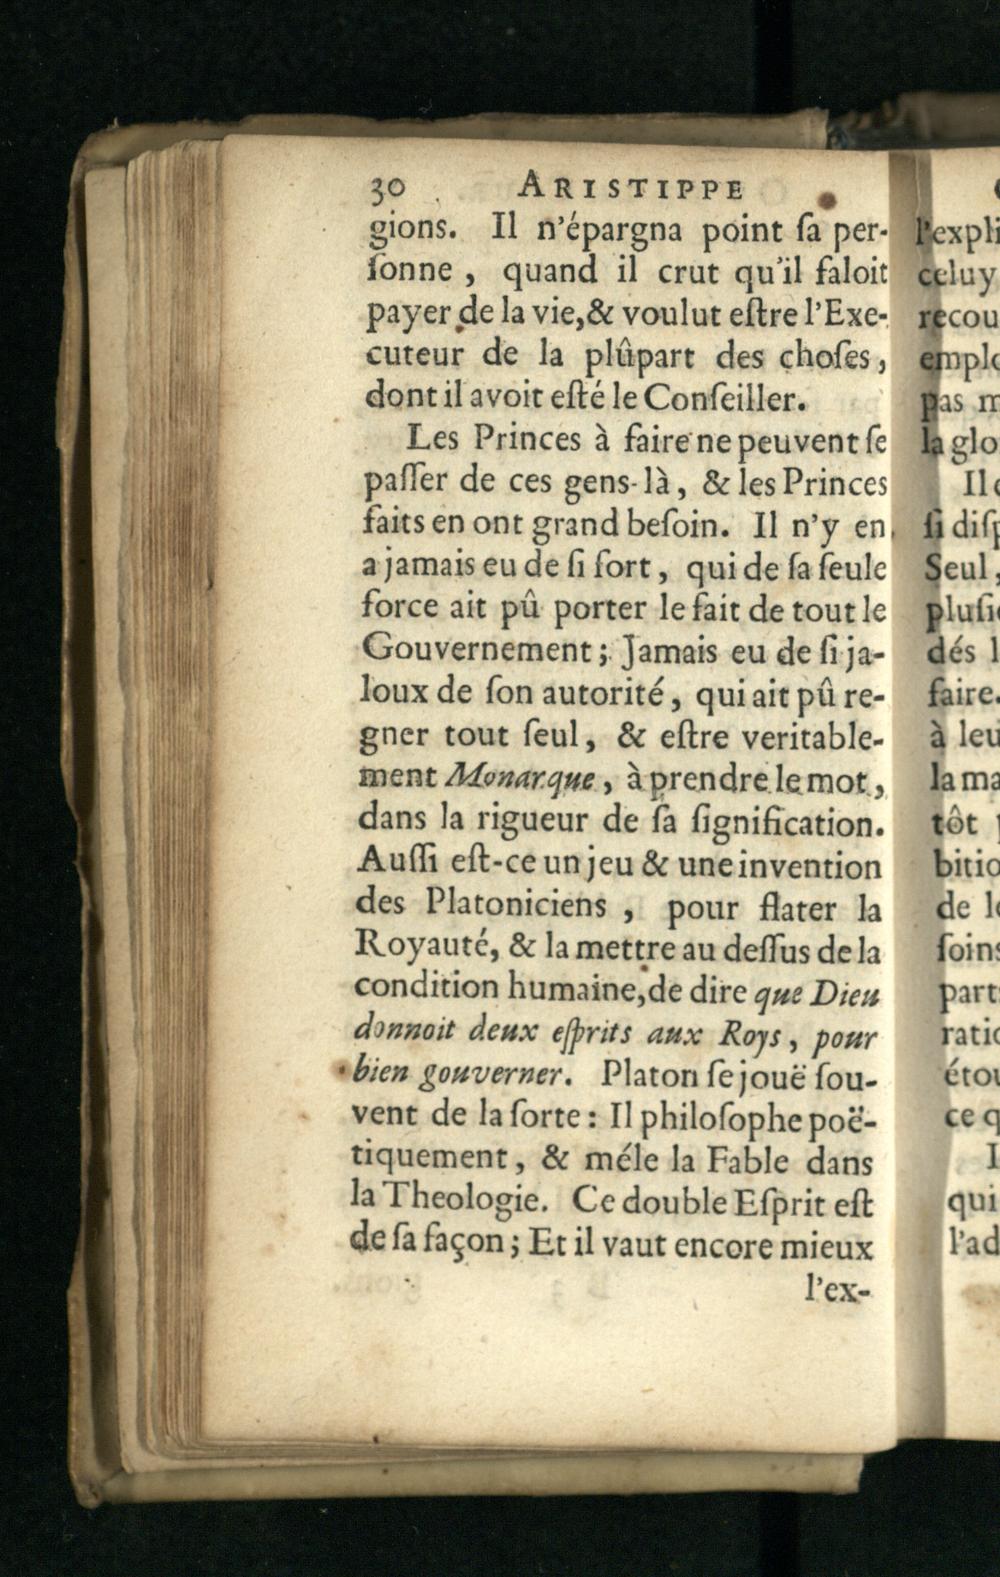 30 ARISTIPPE
gions. Il n'épargna point ſa per-
ſonne, quand il crut qu'il faloit
payer de la vie, & voulut eſtre l'Exe-
cuteur de la plûpart des choſes,
dont il avoit eſté le Conſeiller.
Les Princes à faire ne peuvent ſe
paſſer de ces gens-là, & les Princes
faits en ont grand beſoin. Il n'y en
a jamais eu de ſi fort, qui de ſa ſeule
force ait pû porter le fait de tout le
Gouvernement; Jamais eu de ſi ja-
loux de ſon autorité, qui ait pû re-
gner tout ſeul, & eſtre veritable-
ment Monarque, à prendre le mot,
dans la rigueur de ſa ſignification.
Auſſi eſt-ce un jeu & une invention
des Platoniciens, pour flater la
Royauté, & la mettre au deſſus de la
condition humaine, de dire que Dieu
donnoit deux eſprits aux Roys, pour
bien gouverner. Platon ſe jouë ſou-
vent de la ſorte: Il philoſophe poë-
tiquement, & méle la Fable dans
la Theologie. Ce double Eſprit eſt
de ſa façon; Et il vaut encore mieux
l'ex-
l'expli
celuy
recou
emplo
pas m
la glo
Il
ſi diſp
Seul,
pluſie
dés l
faire.
à leu
la ma
tôt
bitio
de l
ſoins
part
ratio
étou
ce q
I
qui
l'ad